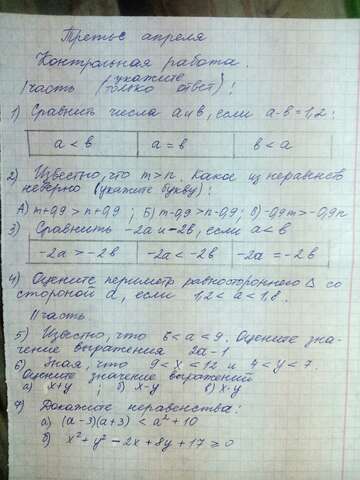 Третье апреля
Контрольная работа.
I часть (укажите только ответ):
1) Сравнить числа a и b, если a-b=1,2:
a < b | a = b | b < a
2) Известно, что m>n. Какое из неравенств
неверно (укажите букву):
А) m+0,9 > n+0,9 ; Б) m-0,9 > n-0,9; В) -0,9m > -0,9n
3) Сравнить -2a и -2b, если a<b
-2a > -2b | -2a < -2b | -2a = -2b
4) Оцените периметр равностороннего Δ со
стороной a, если 1,2 < a < 1,8.
II часть.
5) Известно, что 6 < a < 9. Оцените зна-
чение выражения 2a-1
6) Зная, что 9 < x < 12 и 4 < y < 7.
Оцените значение выражений
а) x+y ; б) x-y в) x·y
7) Докажите неравенства:
а) (a-3)(a+3) < a²+10
б) x²+y²-2x+8y+17 ≥ 0